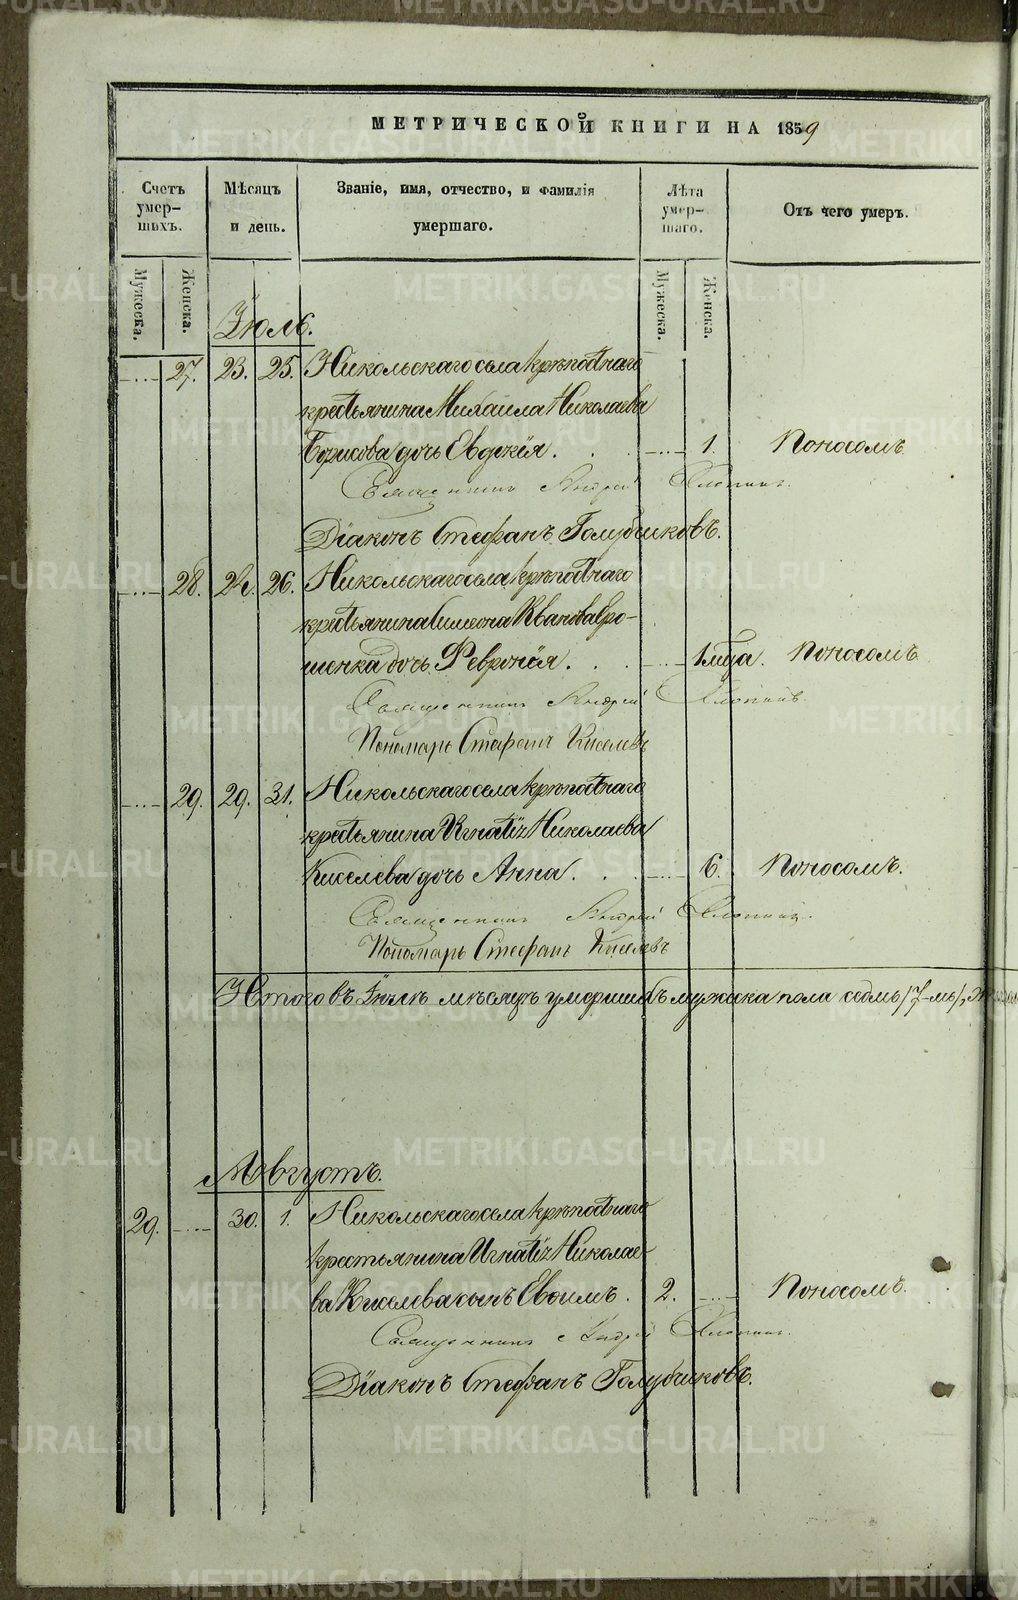 МЕТРИЧЕСКОЙ КНИГИ НА 1859
Счетъ умер-шихъ.
Мѣсяцъ и день.
Званіе, имя, отчество, и фамилія умершаго.
Лѣта умер-шаго.
Отъ чего умеръ.
Мужеска. Женска. Мужеска. Женска.
Іюль.
27. 23. 25. Никольскаго села крѣпостнаго
крестьянина Михаила Николаева
Борисова дочь Евдокія. 1. Поносомъ
Священникъ Андрей
Діаконъ Стефанъ Голубчиковъ.
28. 24. 26. Никольскаго села крѣпостнаго
крестьянина Симеона Иванова Еро-
шенка дочь Февронія. 1 мца. Поносомъ
Священникъ Андрей
Пономарь Стефанъ Киселевъ
29. 29. 31. Никольскаго села крѣпостнаго
крестьянина Игнатія Николаева
Киселева дочь Анна. 6. Поносомъ.
Священникъ Андрей
Пономарь Стефанъ Киселевъ
Итого въ Іюлѣ мѣсяцѣ умершихъ мужеска пола седмь /7-мь/,
Августъ.
29. 30. 1. Никольскаго села крѣпостнаго
крестьянина Игнатія Николае-
ва Киселева сынъ Евѳимъ. 2. Поносомъ.
Священникъ Андрей
Діаконъ Стефанъ Голубчиковъ.
METRIKI.GASO-URAL.RU